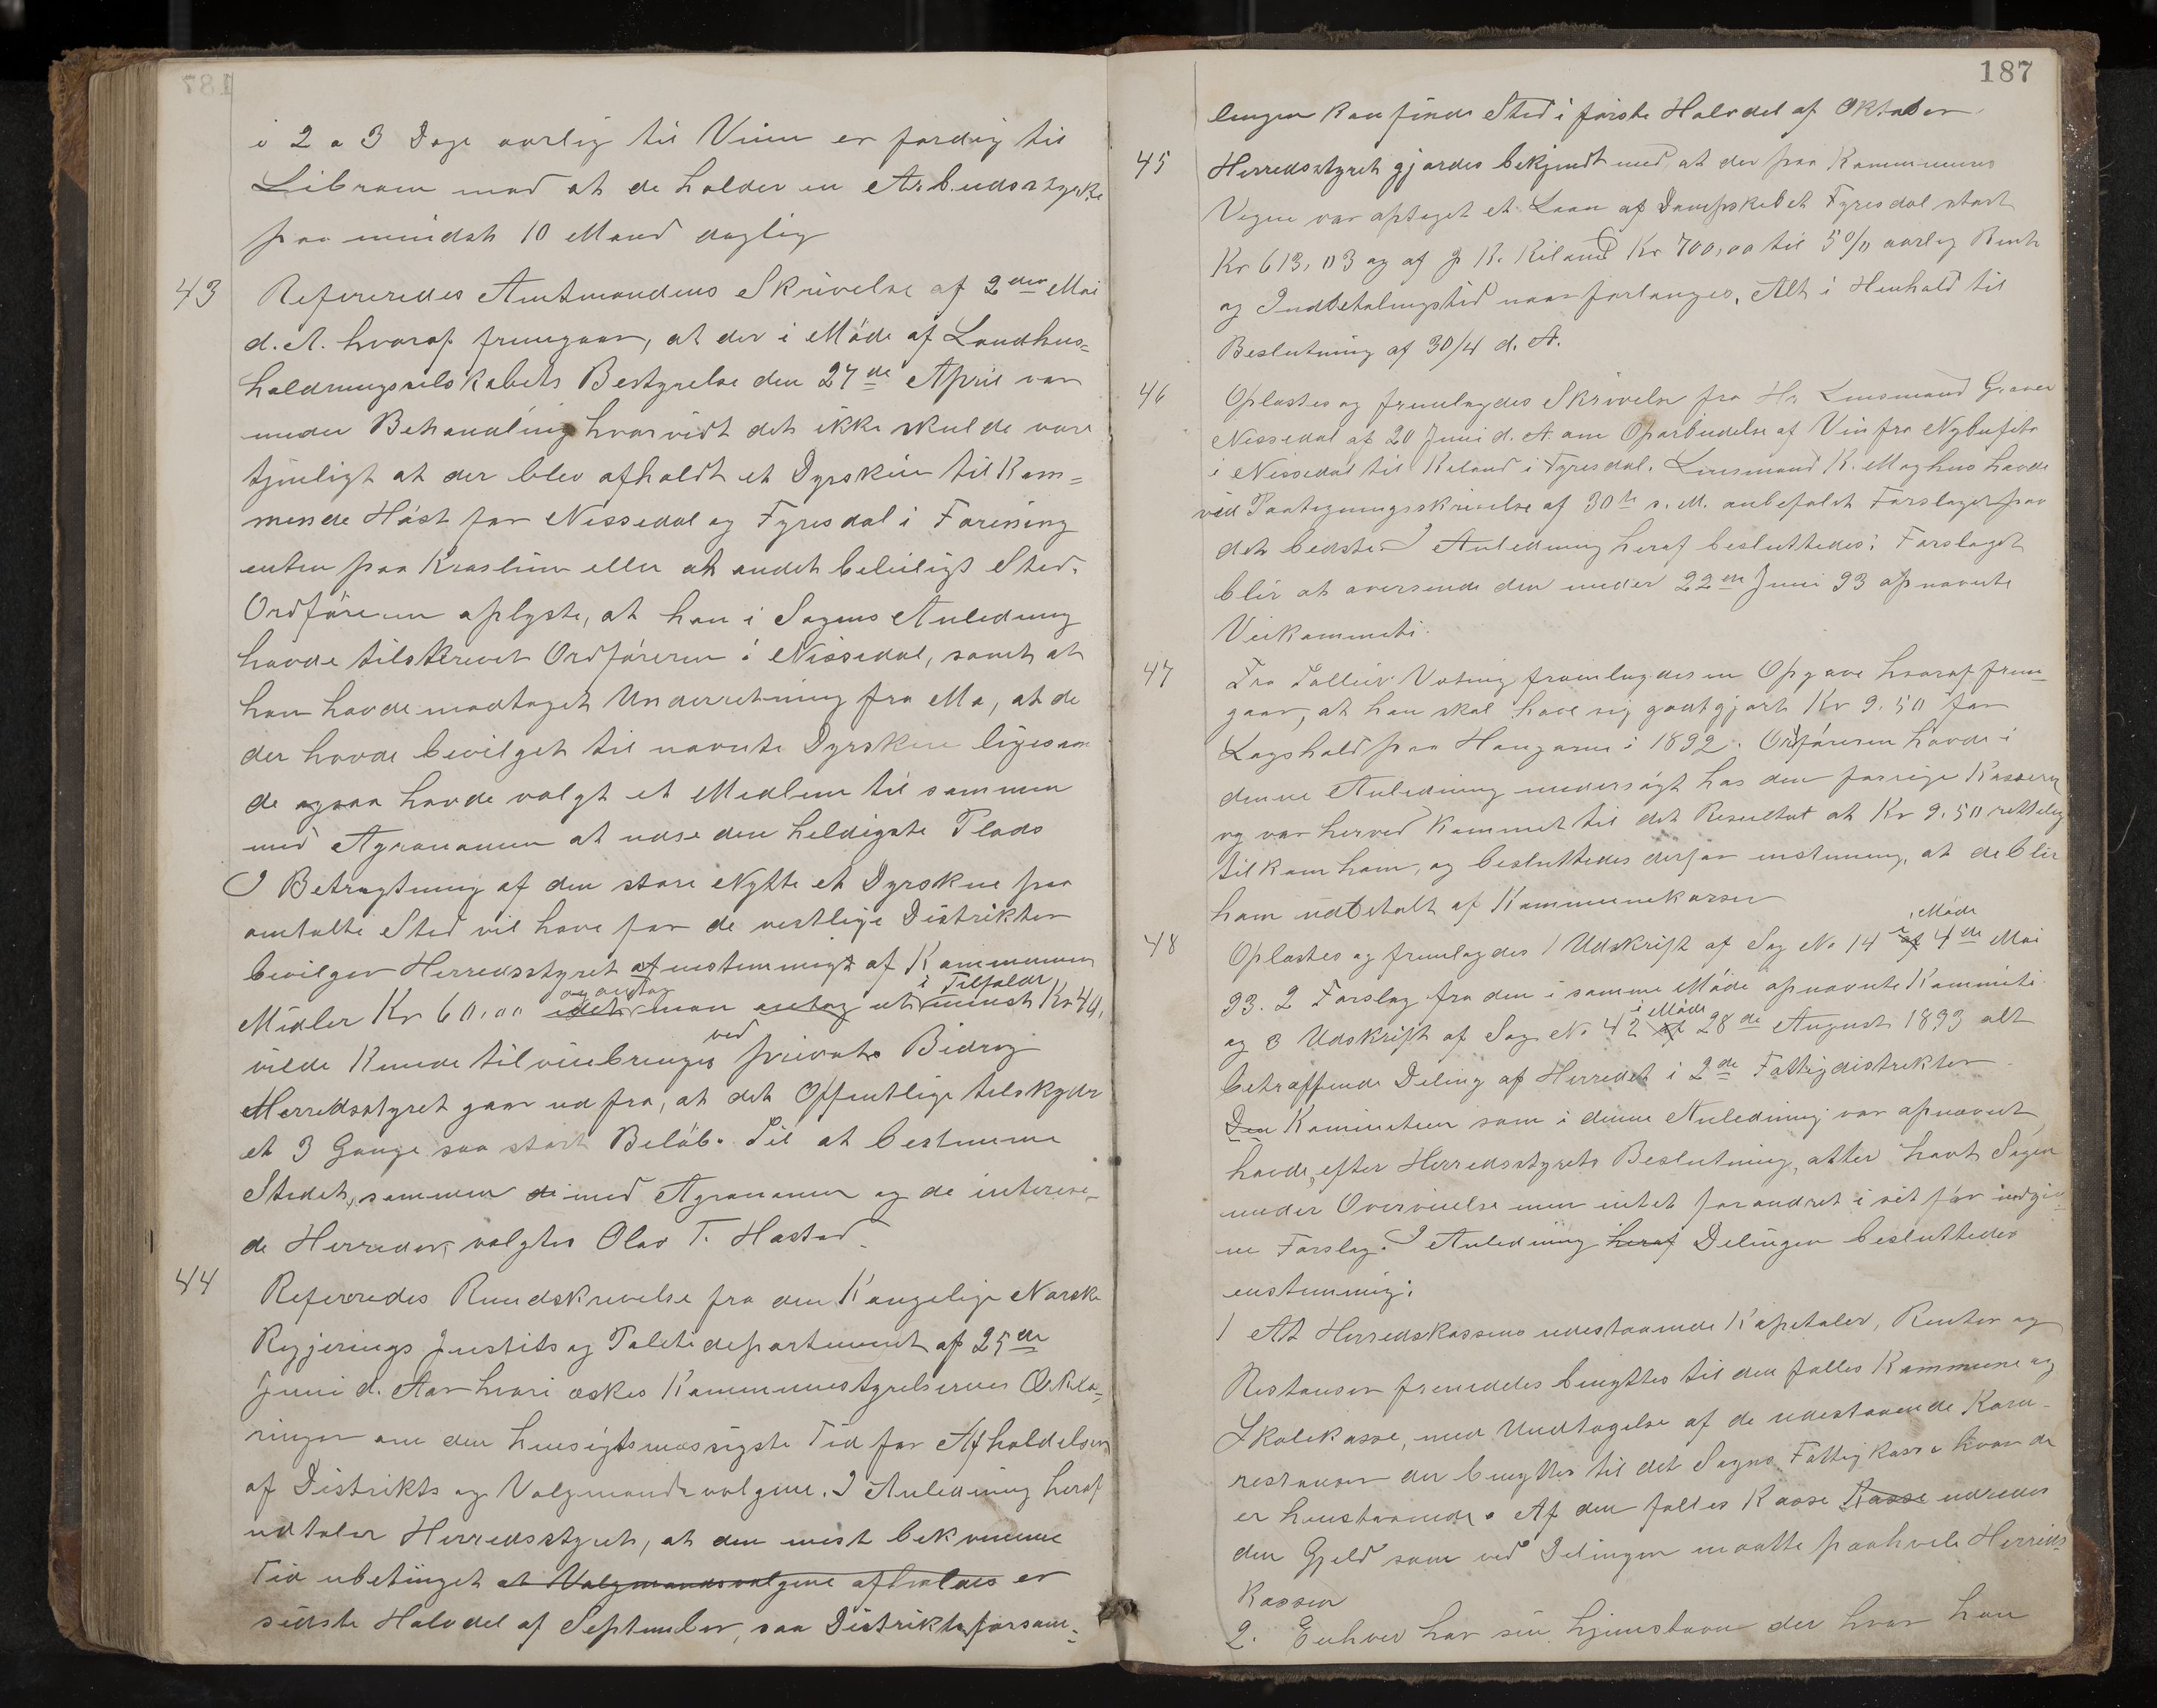 i 2 a 3 Dage aarlig til Veien er færdig til
Librom mod at de holder en Arbeidsstyrke
paa mindst 10 Mand daglig
43 Refereredes Amtmandens Skrivelse af 2den Mai
d.A. hvoraf fremgaar, at der i Møde af Landhus=
holdningsselskabets Bestyrelse den 27de April var
under Behandling hvorvidt det ikke skulde være
tjenligt at der blev afholdt et Dyrskue til Kom=
mende Høst for Nissedal og Fyresdal i Forening
enten paa Kraslien eller at andet beleiligt Sted.
Ordføreren oplyste, at han i Sagens Anledning
havde tilskrevet Ordføreren i Nissedal, samt at
han havde modtaget Underretning fra Ma, at de
der havde bevilget til nævnte Dyrskue ligesom
de ogsaa havde valgt et Medlem til sammen
med Agronomen at udse den heldigste Plads
I Betragtning af den store Nytte et Dyrskue paa
omtalte Sted vil have for de vestlige Distrikter
bevilger Herredsstyret enstemmigt af Kommunens
og antog i Tilfælde
Midler Kr 60,00 idet man antog at mindst Kr 40,
ved
vilde Kunde tilveiebringes private Bidrag
Herredsstyret gaar ud fra, at det Offentlige tilskyder
et 3 Gange saa stort Beløb. Til at bestemme
Stedet, sammen di med Agronomen og de interese-
de Herreder, valgtes Olav T. Hastad
44 Refereredes Rundskrivelse fra den Kongelige Norske
Regjerings Justits og Politidepartement af 25de
Juni d. Aar hvori æskes Kommunestyrelsernes Erklæ=
ringer om den hensigtsmæssigste Tid for Afholdelsen
af Distrikts og Valgmandsvalgene. I Anledning heraf
udtaler Herredsstyret, at den mest bekvemme
Tid ubetinget at Valgmandsvalgene afholdes er
sidste Halvdel af September, saa Distriktsforsam=
187
lingen kan finde Sted i første Halvdel af Oktober
45 Herredsstyret gjordes bekjendt med, at der paa Kommunens
Vegne var optaget et Laan af Dampskibet Fyresdal stort
Kr 613,03 og af J K. Kiland Kr 700,00 til 5 0/0 aarlig Rente
og Indbetalingstid naar forlanges, Alt i Henhold til
Beslutning af 30/4 d. A.
46 Oplæstes og fremlagdes Skrivelse fra Hr Lensmand Graver
Nissedal af 20 Juni d. A. om Oparbeidelse af Vei fra Nybufita
i Nissedal til Kiland i Fyresdal. Lensmand K. Moghus havde
ved Paategningsskrivelse af 30te s. M. anbefalet Forslaget paa
det bedste. I Anledning heraf besluttedes: Forslaget
blir at oversende den under 22de Juni 93 opnævnte
Veikommite.
47 Fra Talleiv Veting fremlagdes en Opgave hvoraf frem-
gaar, at han skal have sig godtgjort Kr 9.50 for
Lagshold paa Haugane i 1892. Ordføreren havde i
denne Anledning undersøgt hos den forrige Kasserer
og var herved kommet til det Resultat at Kr 9.50 rettelig
tilkom ham, og besluttedes derfor enstemmig, at de blir
ham udbetalt af Kommunekassen
i Møde
48 Oplæstes og fremlagdes 1 Udskrift af Sag No 14 af 4de Mai
93. 2 Forslag fra den i samme Møde opnævnte Kommite
i Møde
og 3 Udskrift af Sag No 42 af 28de August 1893 alt
betræffende Deling af Herredet i 2de Fattigdistrikter
Den Komiteen som i denne Anledning var opnævnt
havde, efter Herredsstyrets Beslutning, atter havt Sagen
under Overveielse men intet forandret i sit før indgiv=
ne Forslag. I Anledning heraf Delingen besluttedes
enstemmig:
1 At Herredskassens udestaaende Kapitaler, Renter og
Restanser fremdeles benyttes til den fælles Kommune og
Skolekasse, med Undtagelse af de udestaaende Korn-
restanser der benyttes til det Sogns Fattigkasse hvor de
er henstaaende. Af den fælles Kasse Kasse udredes
den Gjeld som ved Delingen maatte paahvile Herreds-
Kassen
2. Enhver har sin hjemstavn der hvor han